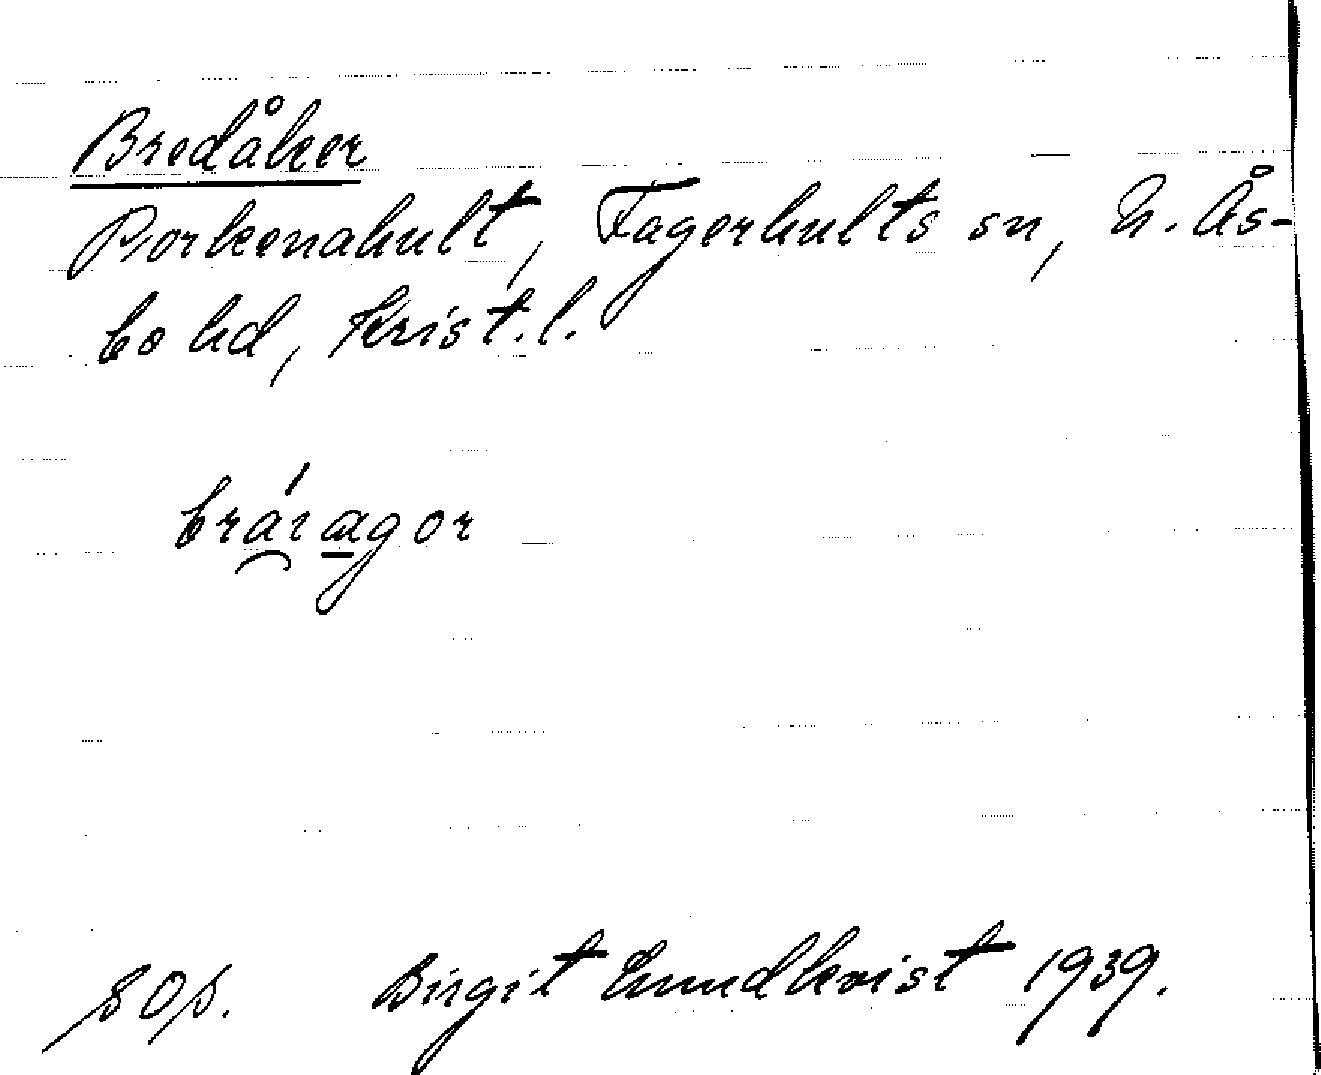 Bredåker
Porkenahult, Fagerhults sn, N. Ås-
bo hd, Krist. l.
bráragor
Birgit Lundkvist 1939.